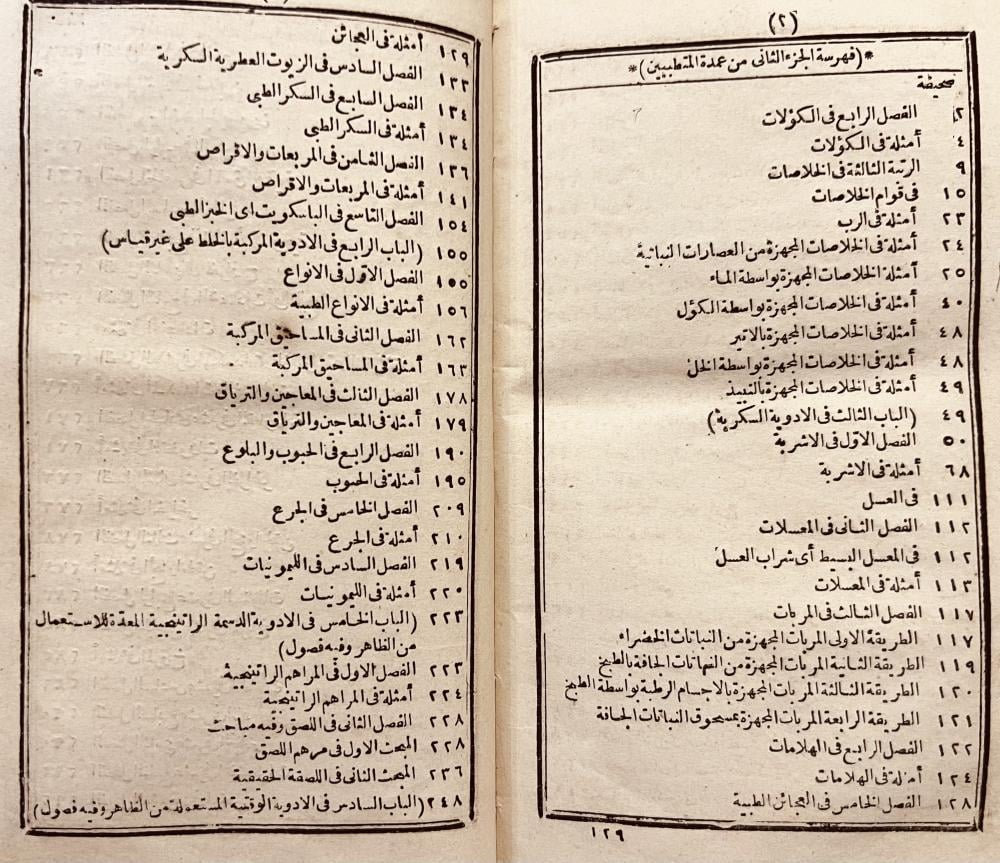 (٢)
*(فهرسة الجزء الثانى من عمدة المتطببين)*
صحيفة
٢ الفصل الرابع فى الكؤلات
٤ أمثلة فى الكؤلات
٩ الرتبة الثالثة فى الخلاصات
١٥ فى قوام الخلاصات
٢٣ أمثلة فى الرب
٢٤ أمثلة فى الخلاصات المجهزة من العصارات النباتية
٢٥ أمثلة الخلاصات المجهزة بواسطة الماء
٤٠ أمثلة فى الخلاصات المجهزة بواسطة الكؤل
٤٨ أمثلة فى الخلاصات المجهزة بالاتير
٤٨ أمثلة فى الخلاصات المجهزة بواسطة الخل
٤٩ أمثلة فى الخلاصات المجهزة بالنبيذ
٤٩ (الباب الثالث فى الادوية السكرية)
٥٠ الفصل الاوّل فى الاشربة
٦٨ أمثلة فى الاشربة
١١١ فى العسل
١١٢ الفصل الثانى فى المعسلات
١١٢ فى المعسل البسيط أى شراب العسل
١١٣ أمثلة فى المعسلات
١١٧ الفصل الثالث فى المربات
١١٧ الطريقة الاولى المربات المجهزة من النباتات الخضراء
١١٩ الطريقة الثانية المربات المجهزة من النباتات الجافة بالطبخ
١٢٠ الطريقة الثالثة المربات المجهزة بالاجسام الرطبة بواسطة الطبخ
١٢١ الطريقة الرابعة المربات المجهزة بمسحوق النباتات الجافة
١٢٢ الفصل الرابع فى الهلامات
١٢٤ أمثلة فى الهلامات
١٢٨ الفصل الخامس فى العجائن الطبية
١٢٩
١٢٩ أمثلة فى العجائن
١٣٣ الفصل السادس فى الزيوت العطرية السكرية
١٣٤ الفصل السابع فى السكر الطبى
١٣٤ أمثلة فى السكر الطبى
١٣٦ الفصل الثامن فى المربعات والاقراص
١٤١ أمثلة فى المربعات والاقراص
١٥٤ الفصل التاسع فى الباسكويت اى الخبز الطبى
١٥٥ (الباب الرابع فى الادوية المركبة بالخلط على غير قياس)
١٥٥ الفصل الاوّل فى الانواع
١٥٦ أمثلة فى الانواع الطبية
١٦٢ الفصل الثانى فى المساحيق المركبة
١٦٣ أمثلة فى المساحيق المركبة
١٧٨ الفصل الثالث فى المعاجين والترياق
١٧٩ أمثلة فى المعاجين والترياق
١٩٠ الفصل الرابع فى الحبوب والبلوع
١٩٥ أمثلة فى الحبوب
٢٠٩ الفصل الخامس فى الجرع
٢١٠ أمثلة فى الجرع
٢١٩ الفصل السادس فى الليمونيات
٢٢٠ أمثلة فى الليمونيات
٢٢٣ (الباب الخامس فى الادوية الدسمة الراتينجية المعدة للاستعمال
من الظاهر وفيه فصول)
٢٢٣ الفصل الاول فى المراهم الراتينجية
٢٢٤ أمثلة فى المراهم الراتينجية
٢٢٨ الفصل الثانى فى اللصق وفيه مباحث
٢٢٨ المبحث الاول فى مرهم اللصق
٢٣٦ المبحث الثانى فى اللصقة الحقيقية
٢٤٨ (الباب السادس فى الادوية الوقتية المستعملة من الظاهر وفيه فصول)